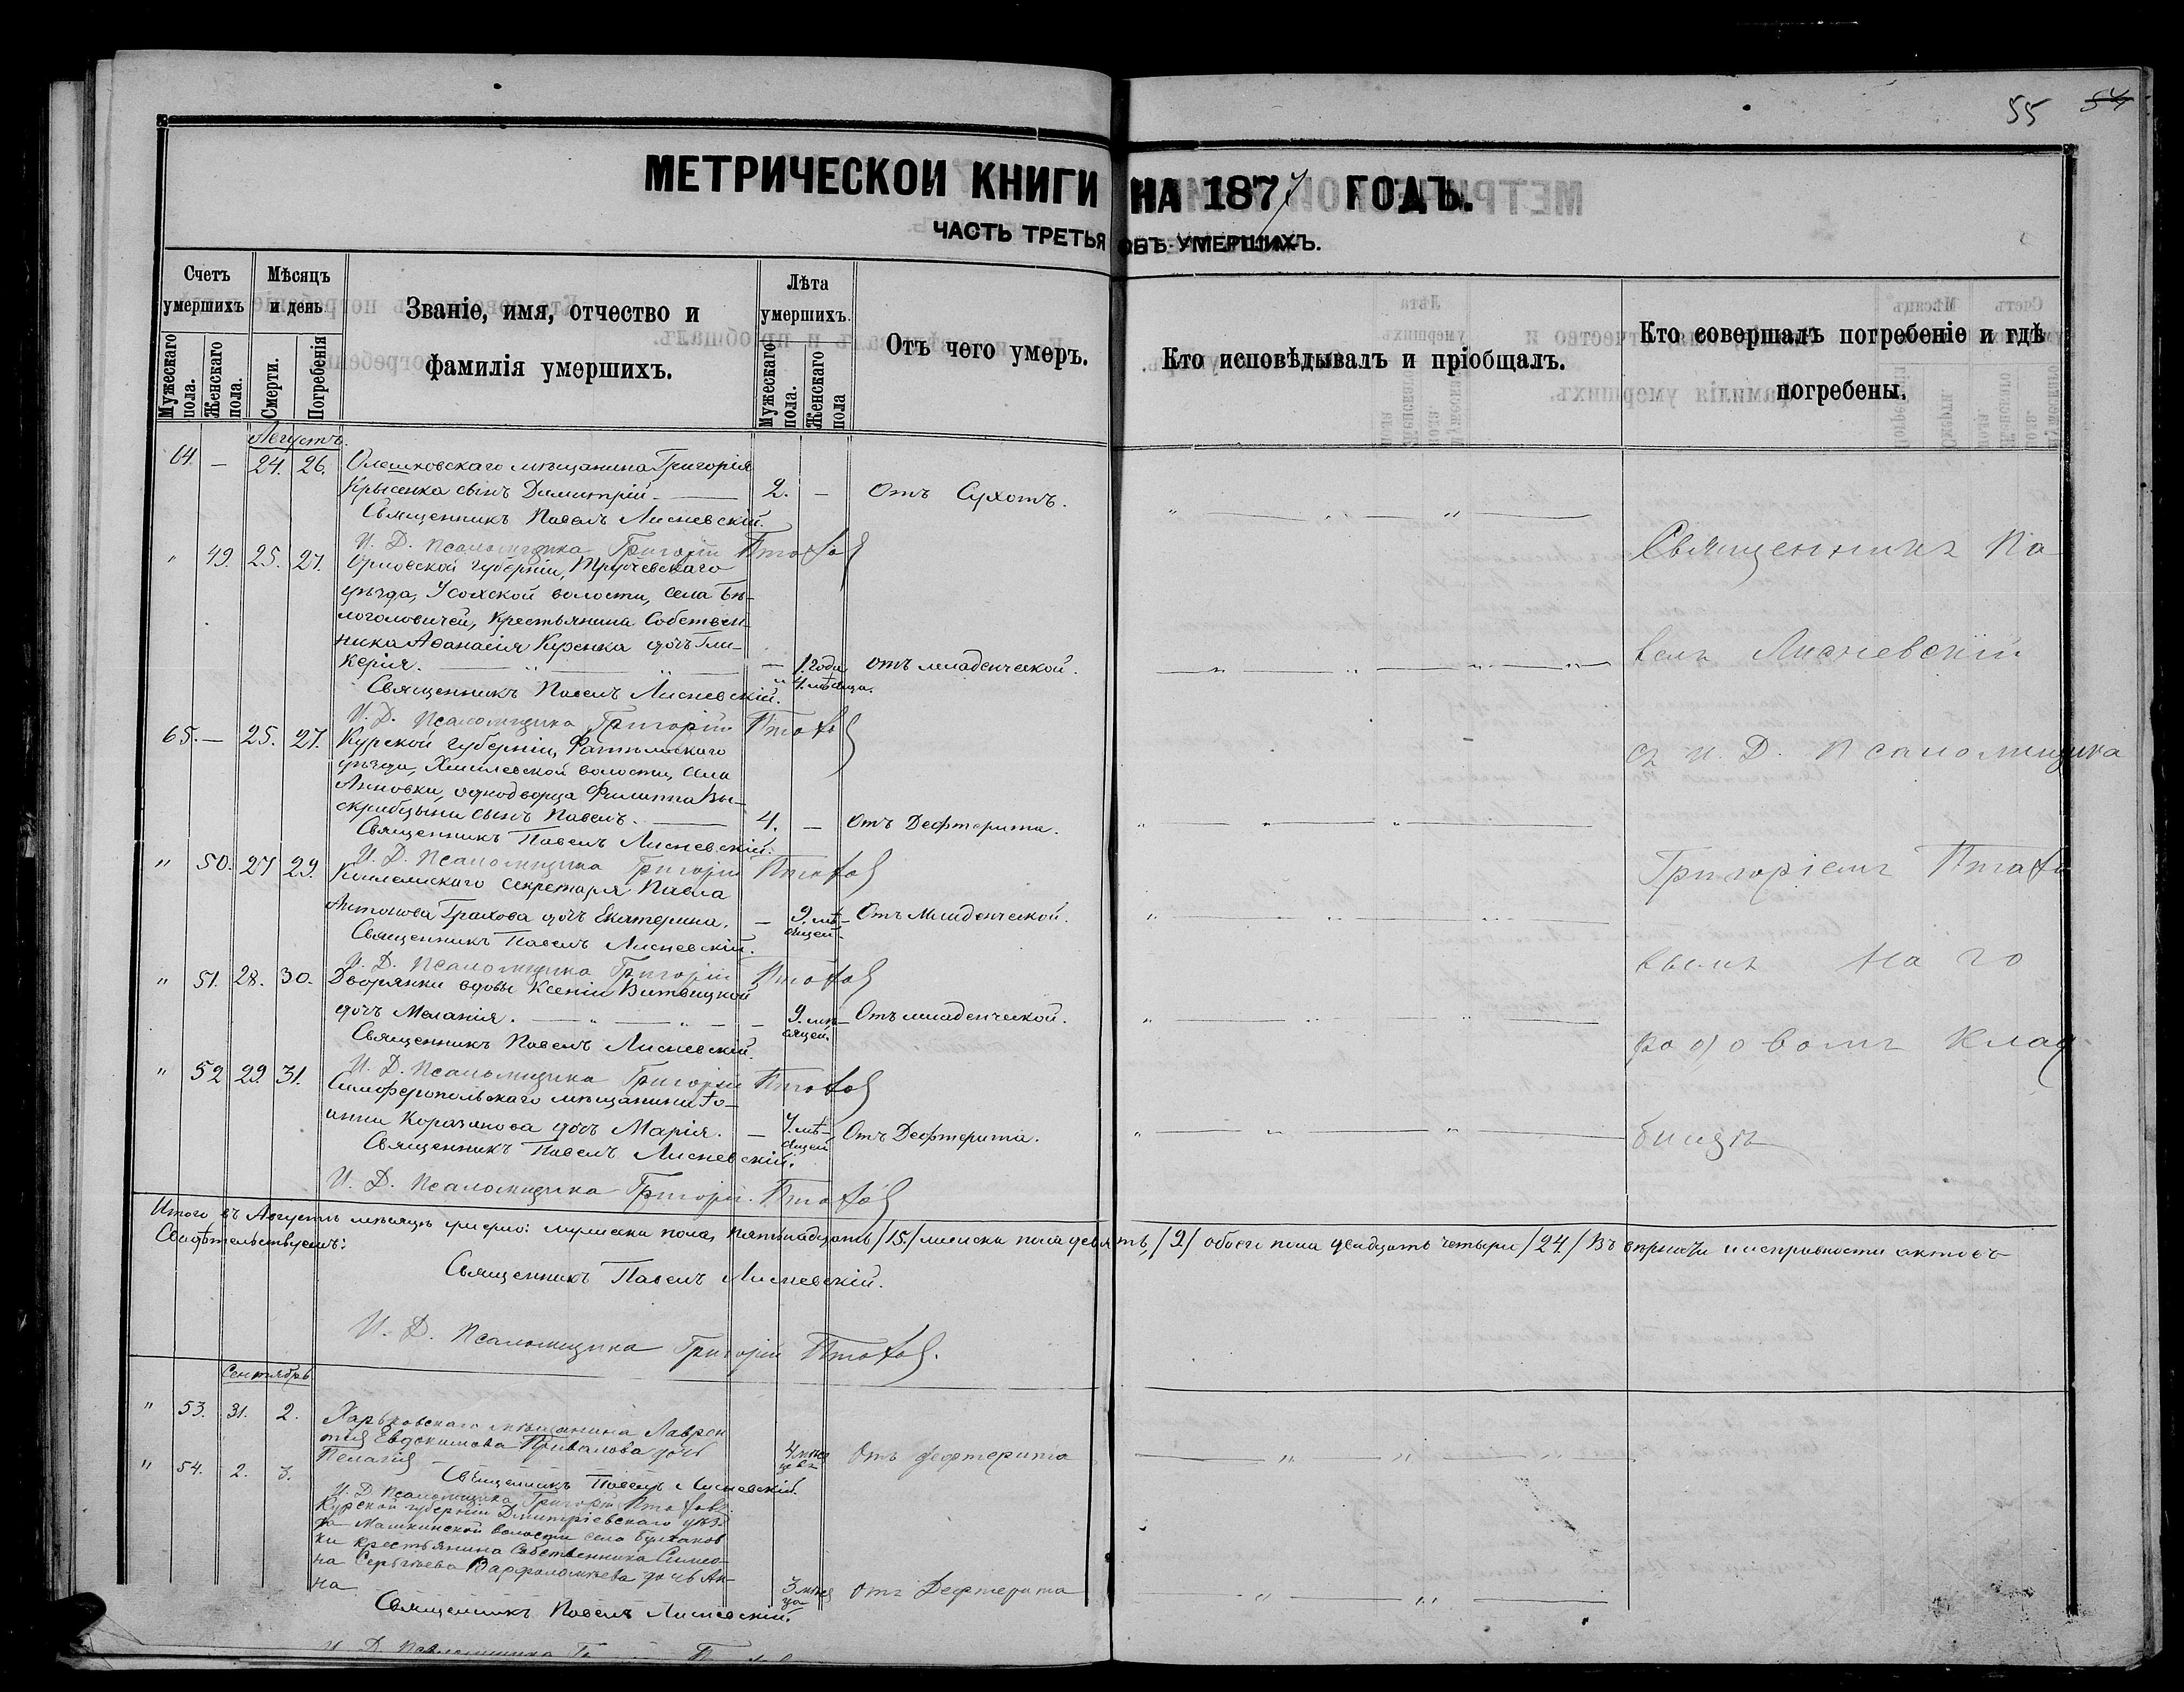 55 54
МЕТРИЧЕСКОЙ КНИГИ НА 1877 ГОДЪ.
ЧАСТЬ ТРЕТЬЯ ОБЪ УМЕРШИХЪ.
Счетъ умершихъ
Мужескаго пола.
Женскаго пола.
Мѣсяцъ и день
Смерти.
Погребенія
Званіе, имя, отчество и
фамилія умершихъ.
Лѣта умершихъ.
Мужескаго пола.
Женскаго пола
Отъ чего умеръ.
Кто исповѣдывалъ и пріобщалъ.
Кто совершалъ погребеніе и гдѣ
погребены.
Августъ.
64. — 24. 26. Олешковскаго мѣщанина Григорія
Крысенка сынъ Димитрій. — 2. — Отъ Сухотъ.
Священникъ Павелъ Лисневскій.
И. Д. Псаломщика Григорій
" 49. 25. 27. Орловской губерніи, Трубчевскаго
уѣзда, Усохской волости, села Бѣ-
логоловичей, крестьянина Собствен-
ника Аѳанасія Куренка дочь Гли-
керія. — 1 годъ и 4. мѣсяца. Отъ младенческой.
Священникъ Павелъ Лисневскій.
И. Д. Псаломщика Григорій
65. — 25. 27. Курской губерніи,
уѣзда, волости, села
однодворца Филиппа
сынъ Павелъ. — 4. — Отъ Дефтерита.
Священникъ Павелъ Лисневскій.
И. Д. Псаломщика Григорій
" 50. 27 29. секретаря Павла
Антонова Грахова дочь Екатерина. — 9. мѣ-
сяцей. Отъ Младенческой.
Священникъ Павелъ Лисневскій.
И. Д. Псаломщика Григорій
" 51. 28. 30. Дворянки вдовы Ксеніи
дочь Меланія. — 9. мѣ-
сяцей. Отъ младенческой.
Священникъ Павелъ Лисневскій.
И. Д. Псаломщика Григорій
" 52 29. 31. Симферопольскаго мѣщанина Іо-
анна дочь Марія. — 7. мѣ-
сяцей Отъ Дефтерита.
Священникъ Павелъ Лисневскій.
И. Д. Псаломщика Григорій
Священникъ Па-
велъ Лисневскій
съ И. Д. Псаломщика
Григоріемъ
на го
родовомъ клад
бищѣ
Итого въ Августѣ мѣсяцѣ умерло: мужеска пола, пятнадцать /15./ женска пола девять, /9/ обоего пола двадцать четыре /24/ Въ вѣрности и исправности актовъ
Свидѣтельствуемъ:
Священникъ Павелъ Лисневскій.
И. Д. Псаломщика Григорій
Сентябрь
" 53. 31. 2. Харьковскаго мѣщанина Лаврен
тія Евдокимова Привалова дочь
Пелагія 4 Отъ дефтерита
Священникъ Павелъ Лисневскій.
И. Д. Псаломщика Григорій
" 54. 2. 3. Курской губерніи Дмитріевскаго уѣз
да волости села
ки крестьянина Собственника Симео-
на Варфоломеева дочь Ан-
на 3 Отъ Дефтерита
Священникъ Павелъ Лисневскій.
И. Д. Псаломщика